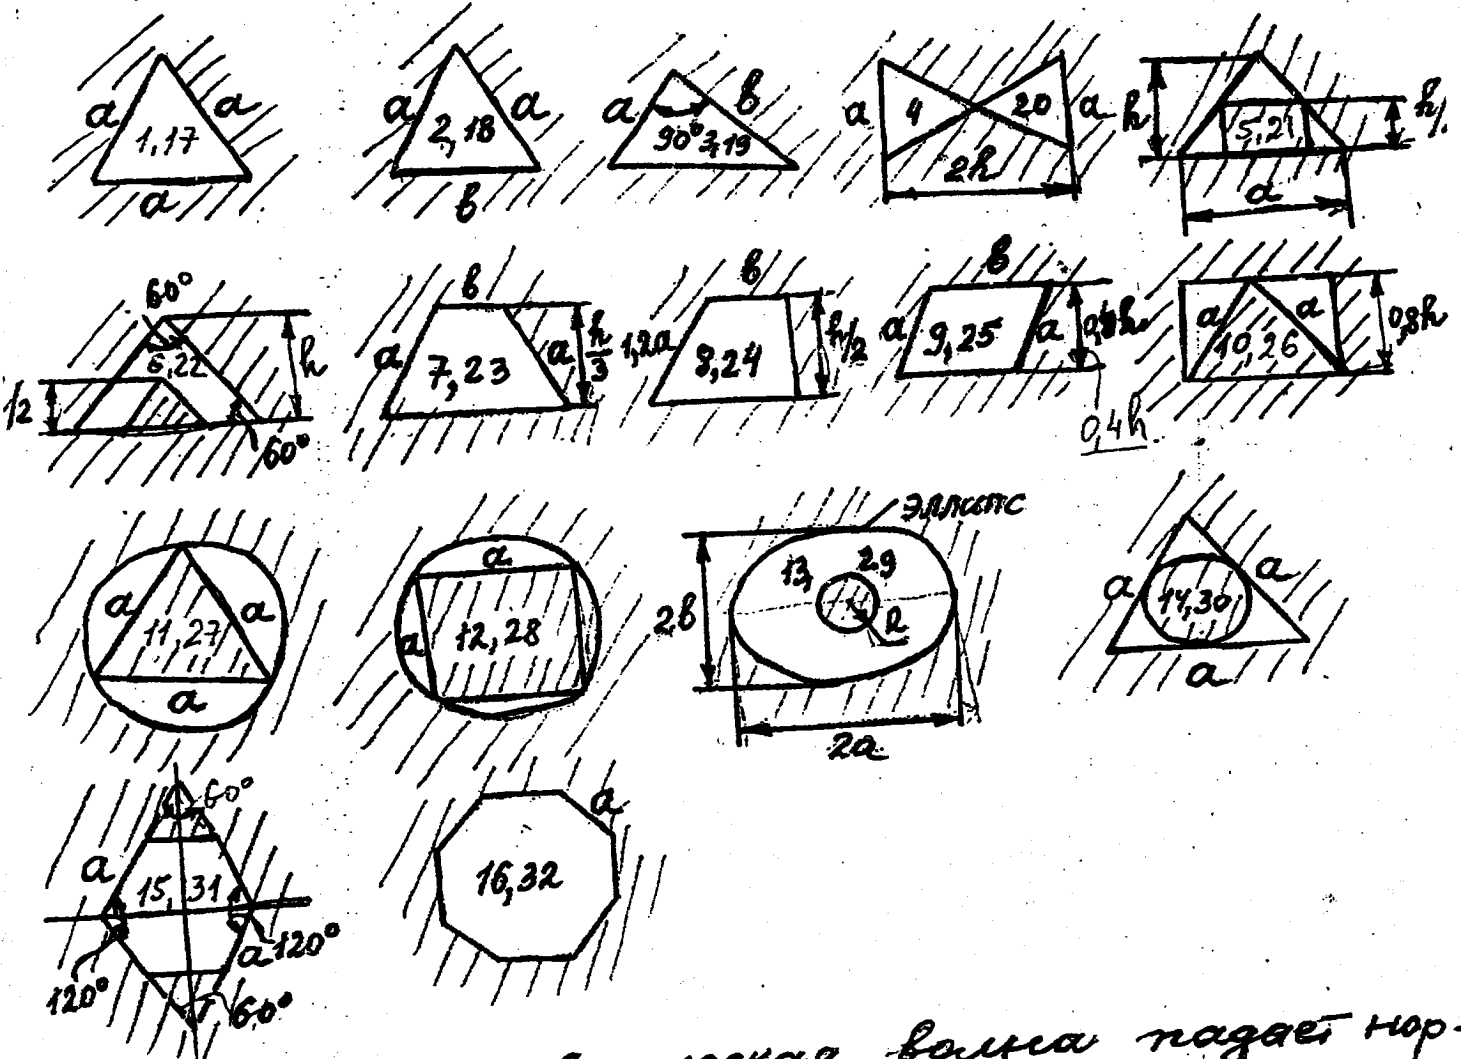 a a 1,17 a
a a 2,18 в
a в 90° 3,19
a 4 20 a 2h
h 5,21 h/. a
60° 6,22 h /2 60°
в a 7,23 a h/3
в 1,2a 8,24 h/2
в a 9,25 a 0,4h
a a 10,26 0,8h
a a 11,27 a
a a 12,28
эллипс 13, 29 R 2в 2a
a a 14,30 a
60° a 15,31 a 120° 120° 60°
a 16,32
волна падает нор-